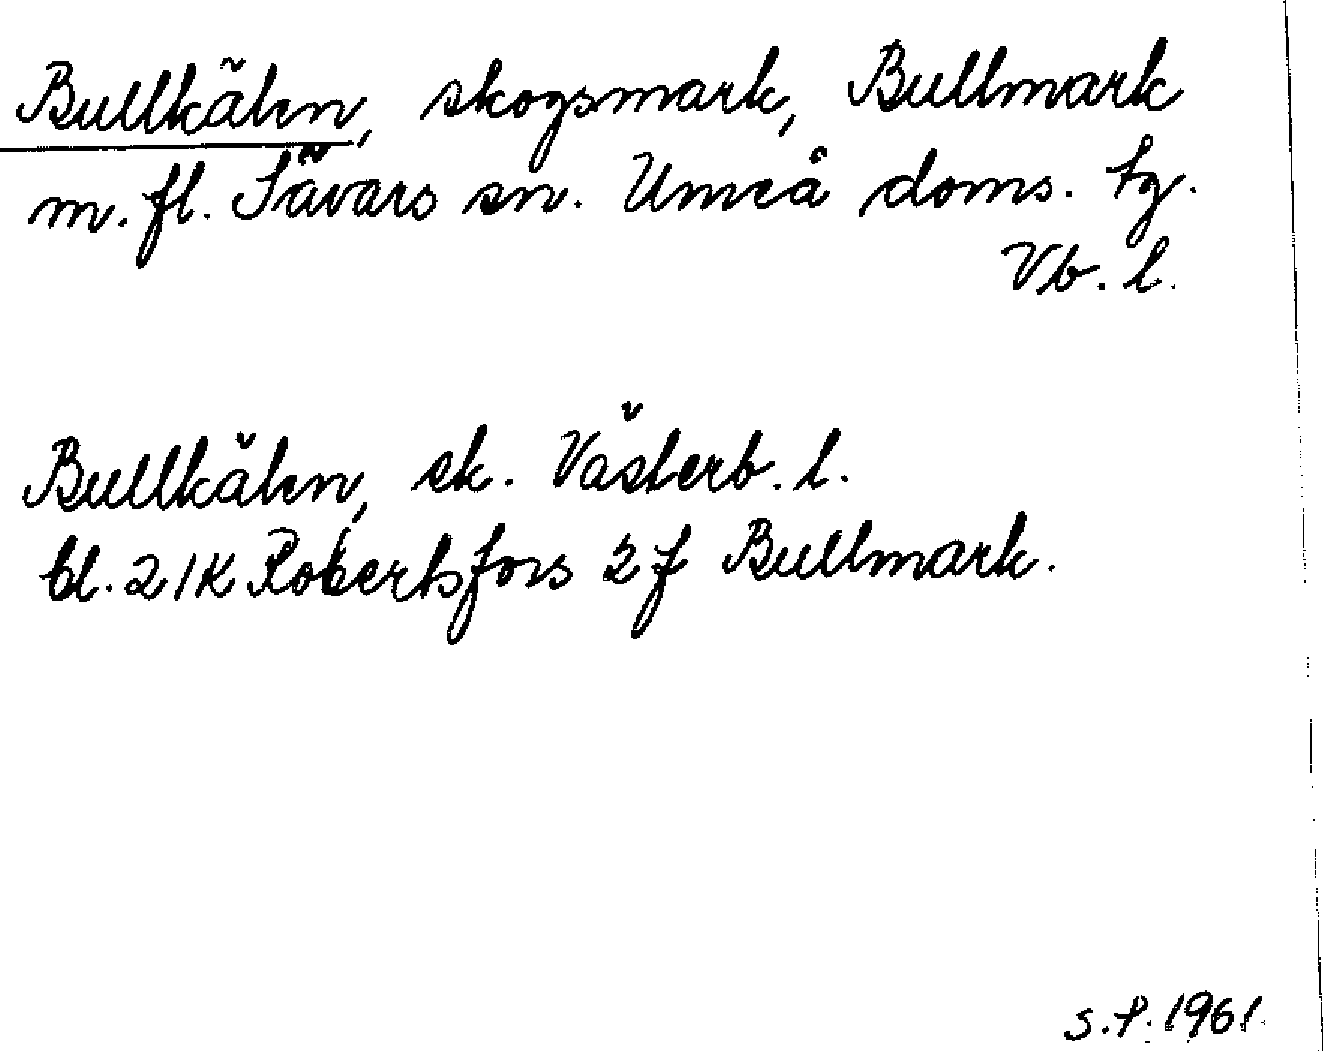 Bullkälen, skogsmark, Bullmark
m. fl. Sävars sn. Umeå doms. tg.
Vb. l.
Bullkälen, sk. Västerb. l.
bl. 21K Robertsfors 2f Bullmark.
s. f. 1961